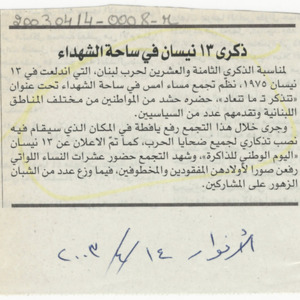 20030414-0008-M
ذكرى ١٣ نيسان في ساحة الشهداء
لمناسبة الذكرى الثامنة والعشرين لحرب لبنان، التي اندلعت في ١٣
نيسان ١٩٧٥، نظّم تجمع مساء امس في ساحة الشهداء تحت عنوان
«تنذكر ت ما تنعاد»، حضره حشد من المواطنين من مختلف المناطق
اللبنانية وتقدمهم عدد من السياسيين.
وجرى خلال هذا التجمع رفع يافطة في المكان الذي سيقام فيه
نصب تذكاري لجميع ضحايا الحرب، كما تمّ الاعلان عن ١٣ نيسان
«اليوم الوطني للذاكرة»، وشهد التجمع حضور عشرات النساء اللواتي
رفعن صورا لأولادهن المفقودين والمخطوفين، فيما وزع عدد من الشبان
الزهور على المشاركين.
الأنوار ١٤/٤/٢٠٠٣